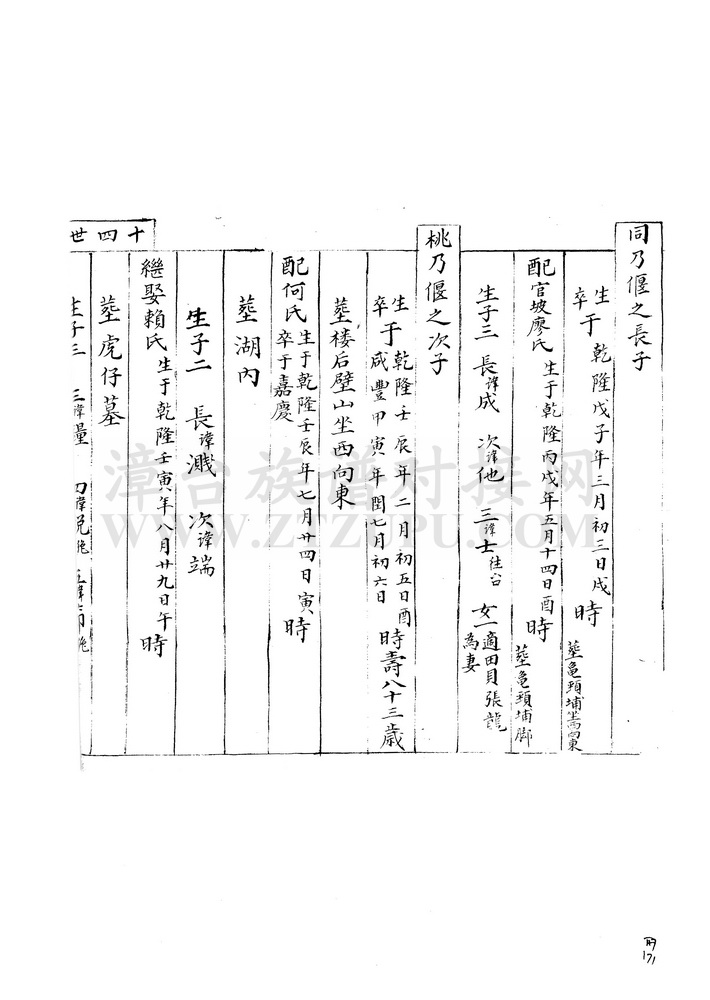 同乃偃之長子
生卒于乾隆戊子年三月初三日戌時 塟亀頚埔
配官坡廖氏生于乾隆丙戌年五月十四日酉時 塟亀頚埔脚
生子三 長諱成 次諱他 三諱士往台 女一適田貝張龍為妻
桃乃偃之次子
生于乾隆壬辰年二月初五日酉時
卒于咸豐甲寅年閏七月初六日 壽八十三歳
塟楼后壁山坐西向東
配何氏生于乾隆壬辰年七月廿四日寅時
卒于嘉慶
塟湖內
生子二 長諱溅 次諱端
繼娶賴氏生于乾隆壬寅年八月廿九日午時
塟虎仔墓
生子三 三諱量 四諱
十四世
漳台族譜对接网
WWW.ZTZUPU.COM
171